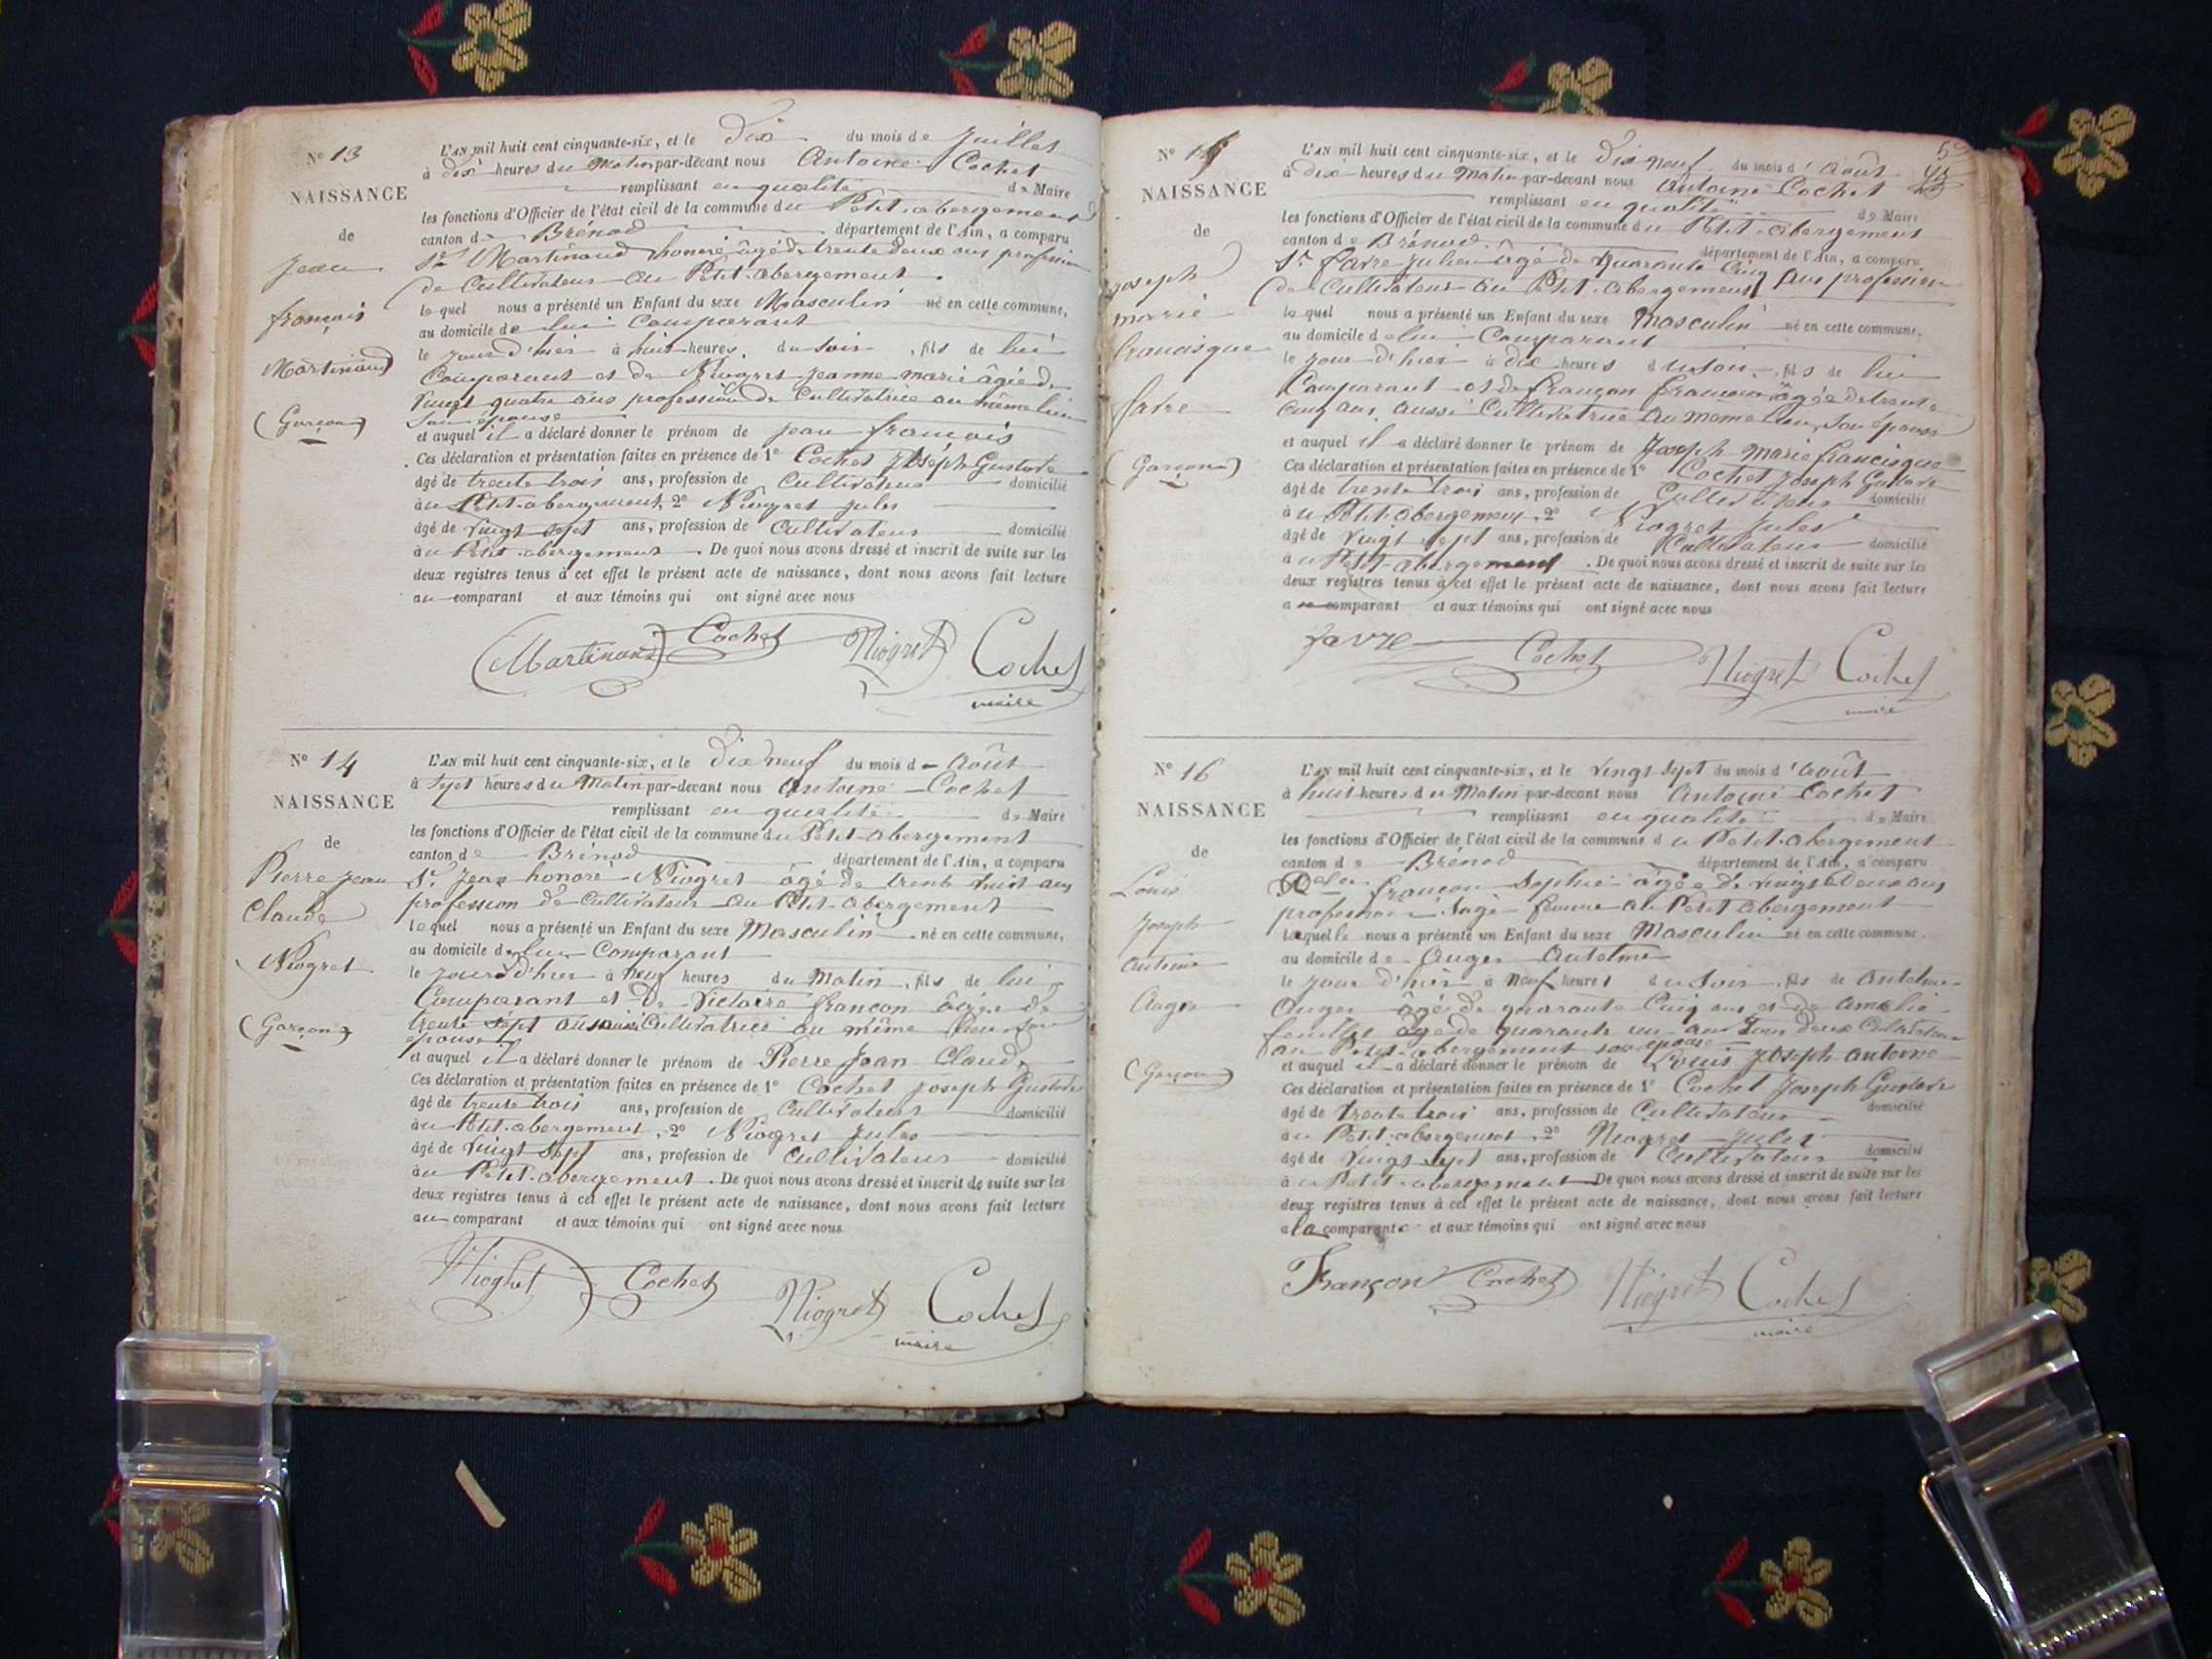 N° 13
NAISSANCE
de
Jean
françois
Martinand
(Garçon)
L'AN mil huit cent cinquante-six, et le Dix du mois de Juillet
à dix heures du Matin par-devant nous Antoine Cochet
remplissant en qualité de Maire
les fonctions d'Officier de l'état civil de la commune du Petit-abergement
canton de Brénod département de l'Ain, a comparu
Sr Martinand honoré âgé de trente deux ans profession
de Cultivateur au Petit-abergement
lequel nous a présenté un Enfant du sexe Masculin né en cette commune,
au domicile de lui Comparant
le jour d'hier à huit heures du soir, fils de lui
Comparant et de Niogret Jeanne marie âgée de
vingt quatre ans profession de Cultivatrice au même lieu
Son épouse
et auquel il a déclaré donner le prénom de Jean françois
Ces déclaration et présentation faites en présence de 1° Cochet Joseph Gustave
âgé de trente trois ans, profession de Cultivateur domicilié
au Petit-abergement, 2° Niogret Jules
âgé de vingt sept ans, profession de Cultivateur domicilié
au Petit-abergement. De quoi nous avons dressé et inscrit de suite sur les
deux registres tenus à cet effet le présent acte de naissance, dont nous avons fait lecture
au comparant et aux témoins qui ont signé avec nous
Martinand Cochet Niogret Cochet
maire
N° 14
NAISSANCE
de
Pierre Jean
Claude
Niogret
(Garçon)
L'AN mil huit cent cinquante-six, et le Dix neuf du mois d Août
à Sept heures du Matin par-devant nous Antoine Cochet
remplissant en qualité de Maire
les fonctions d'Officier de l'état civil de la commune du Petit-abergement
canton de Brénod département de l'Ain, a comparu
Sr Jean honoré Niogret âgé de trente huit ans
profession de Cultivateur au Petit-abergement
lequel nous a présenté un Enfant du sexe Masculin né en cette commune,
au domicile de lui Comparant
le jour d'hier à neuf heures du Matin, fils de lui
Comparant et de Victoire françon âgée de
trente sept ans aussi Cultivatrice au même lieu son
épouse
et auquel il a déclaré donner le prénom de Pierre Jean Claude
Ces déclaration et présentation faites en présence de 1° Cochet Joseph Gustave
âgé de trente trois ans, profession de Cultivateur domicilié
au Petit-abergement, 2° Niogret Jules
âgé de vingt sept ans, profession de Cultivateur domicilié
au Petit-abergement. De quoi nous avons dressé et inscrit de suite sur les
deux registres tenus à cet effet le présent acte de naissance, dont nous avons fait lecture
au comparant et aux témoins qui ont signé avec nous
Niogret Cochet Niogret Cochet
maire
N° 15
NAISSANCE
de
Joseph
marie
francisque
favre
(Garçon)
L'AN mil huit cent cinquante-six, et le Dix neuf du mois d'Août
à dix heures du Matin par-devant nous Antoine Cochet
remplissant en qualité de Maire
les fonctions d'Officier de l'état civil de la commune du Petit-abergement
canton de Brénod département de l'Ain, a comparu
Sr favre Julien âgé de Quarante Cinq ans profession
de Cultivateur au Petit-abergement
lequel nous a présenté un Enfant du sexe Masculin né en cette commune,
au domicile de lui Comparant
le jour d'hier à dix heures du soir, fils de lui
Comparant et de françon âgée de trente
cinq ans, aussi Cultivatrice au même lieu, son épouse
et auquel il a déclaré donner le prénom de Joseph marie francisque
Ces déclaration et présentation faites en présence de 1° Cochet Joseph Gustave
âgé de trente trois ans, profession de Cultivateur domicilié
au Petit-abergement, 2° Niogret Jules
âgé de vingt sept ans, profession de Cultivateur domicilié
au Petit-abergement. De quoi nous avons dressé et inscrit de suite sur les
deux registres tenus à cet effet le présent acte de naissance, dont nous avons fait lecture
au comparant et aux témoins qui ont signé avec nous
favre Cochet Niogret Cochet
maire
N° 16
NAISSANCE
de
Louis
Joseph
Antoine
Auger
(Garçon)
L'AN mil huit cent cinquante-six, et le vingt Sept du mois d'Août
à huit heures du Matin par-devant nous Antoine Cochet
remplissant en qualité de Maire
les fonctions d'Officier de l'état civil de la commune du Petit-abergement
canton de Brénod département de l'Ain, a comparu
françon Sophie âgée de vingt Deux ans
profession Sage femme au Petit abergement
laquelle nous a présenté un Enfant du sexe Masculin né en cette commune,
au domicile de Auger Antelme
le jour d'hier à Neuf heures du Soir, fils de Antelme
Auger âgé de quarante Cinq ans et de Amelie
âgé de quarante un ans tous deux Cultivateurs
au Petit-abergement son épouse
et auquel il a déclaré donner le prénom de Louis Joseph Antoine
Ces déclaration et présentation faites en présence de 1° Cochet Joseph Gustave
âgé de trente trois ans, profession de Cultivateur domicilié
au Petit-abergement, 2° Niogret Jules
âgé de vingt sept ans, profession de Cultivateur domicilié
au Petit-abergement De quoi nous avons dressé et inscrit de suite sur les
deux registres tenus à cet effet le présent acte de naissance, dont nous avons fait lecture
a la comparante et aux témoins qui ont signé avec nous
Françon Cochet Niogret Cochet
maire